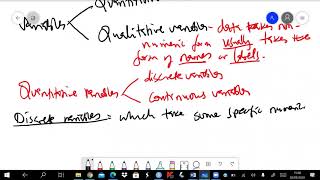 Quantitative
Variables
Qualitative variables - data takes non-
numeric form usually takes the
form of names or labels.
Quantitative variables
discrete variables
continuous variables
Discrete variables = which take some specific numeric